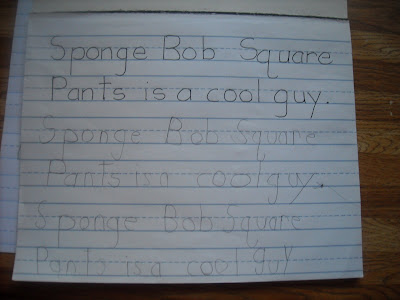 Sponge Bob Square
Pants is a cool guy.
Sponge Bob Square
Pants is a cool guy.
Sponge Bob Square
Pants is a cool guy